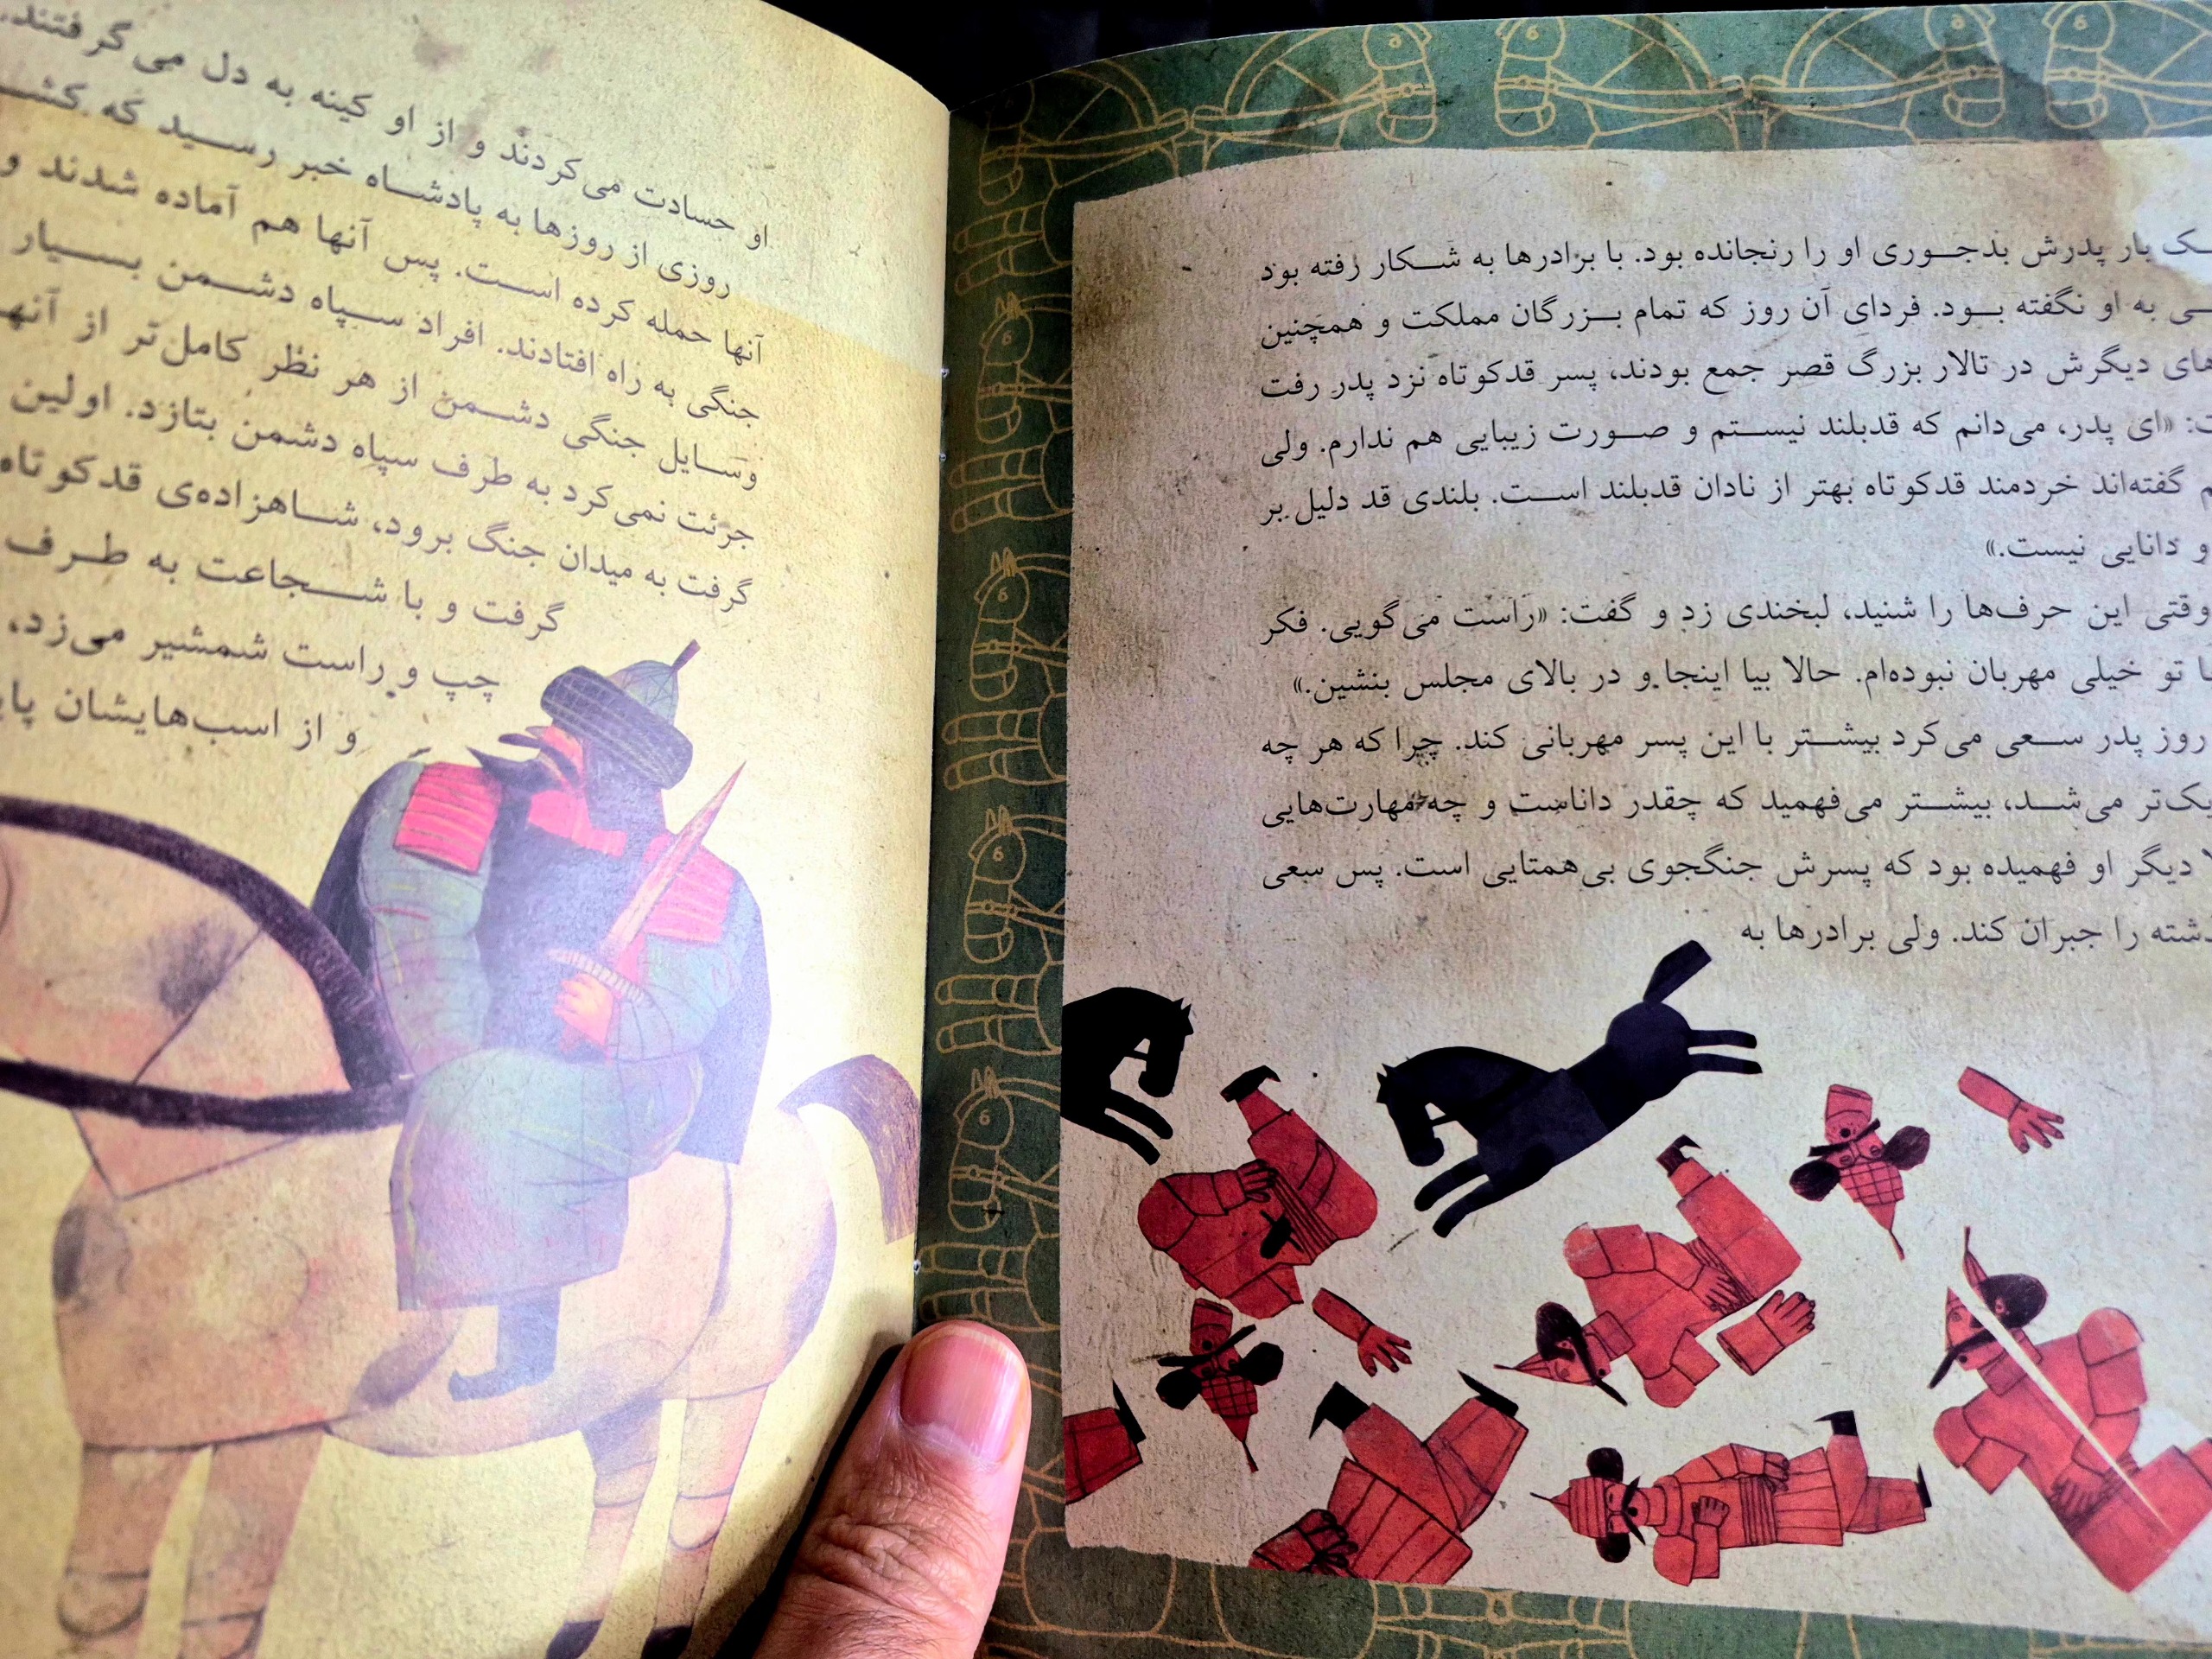 یک بار پدرش بدجوری او را رنجانده بود. با برادرها به شکار رفته بود
به او نگفته بود. فردای آن روز که تمام بزرگان مملکت و همچنین
های دیگرش در تالار بزرگ قصر جمع بودند، پسر قدکوتاه نزد پدر رفت
«ای پدر، می‌دانم که قدبلند نیستم و صورت زیبایی هم ندارم. ولی
گفته‌اند خردمند قدکوتاه بهتر از نادان قدبلند است. بلندی قد دلیل بر
و دانایی نیست.»
وقتی این حرف‌ها را شنید، لبخندی زد و گفت: «راست می‌گویی. فکر
تو خیلی مهربان نبوده‌ام. حالا بیا اینجا و در بالای مجلس بنشین.»
روز پدر سعی می‌کرد بیشتر با این پسر مهربانی کند. چرا که هر چه
می‌شد، بیشتر می‌فهمید که چقدر داناست و چه مهارت‌هایی
دیگر او فهمیده بود که پسرش جنگجوی بی‌همتایی است. پس سعی
را جبران کند. ولی برادرها به
او حسادت می‌کردند و از او کینه به دل می‌گرفتند.
روزی از روزها به پادشاه خبر رسید که
آنها حمله کرده است. پس آنها هم آماده شدند و
جنگی به راه افتادند. افراد سپاه دشمن بسیار
وسایل جنگی دشمن از هر نظر کامل‌تر از
جرئت نمی‌کرد به طرف سپاه دشمن بتازد. اولین
گرفت به میدان جنگ برود، شاهزاده‌ی قدکوتاه
گرفت و با شجاعت به طرف
چپ و راست شمشیر می‌زد،
و از اسب‌هایشان